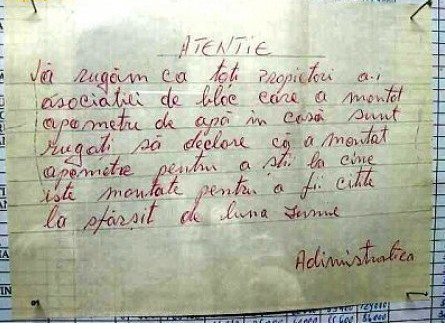 ATENTIE
Vă rugăm ca toți propietori a.i
asociatiei de bloc care a montat
apometru de apă in casă sunt
rugați să declare că a montat
apometre pentru a stii la cine
iste montate pentru a fii citite
la sfârsit de luna
Adiministratia